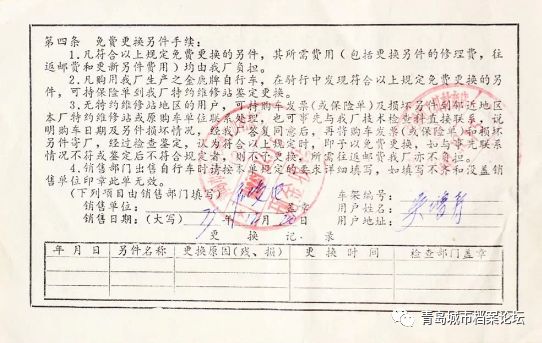 第四条 免费更换另件手续：
1.凡符合以上规定免费更换的另件，其所需费用(包括更换另件的修理费，往
返邮费和更新另件费用)均由我厂负担。
2.凡购用我厂生产之金鹿牌自行车，在骑行中发现符合以上规定免费更换的另
件，可持保险单到我厂特约维修站鉴定更换。
3.无特约维修站地区的用户，可持购车发票(或保险单)及损坏另件到邻近地区
本厂特约维修站或原购车单位联系处理，也可事先与我厂技术检查科直接联系，说
明购车日期及另件损坏情况，经我厂签复同意后，再将购车发票(或保险单)和损坏
另件寄厂，经过检查鉴定，认为符合以上规定时，即予以免费更换，如与事先联系
情况不符或鉴定后不符合规定者，则不予更换，所需往返邮费我厂亦不负担。
4.销售部门出售自行车时请按本单规定的要求详细填写，如填写不齐和没盖销
售单位印章此单无效。
(下列项目由销售部门填写) 车架编号：
销售单位： 盖章 用户姓名：
销售日期：(大写) 年 月 日 用户地址：
更换记录
年月日 另件名称 更换原因(残、损) 更换时间 检查部门盖章
青岛城市档案论坛